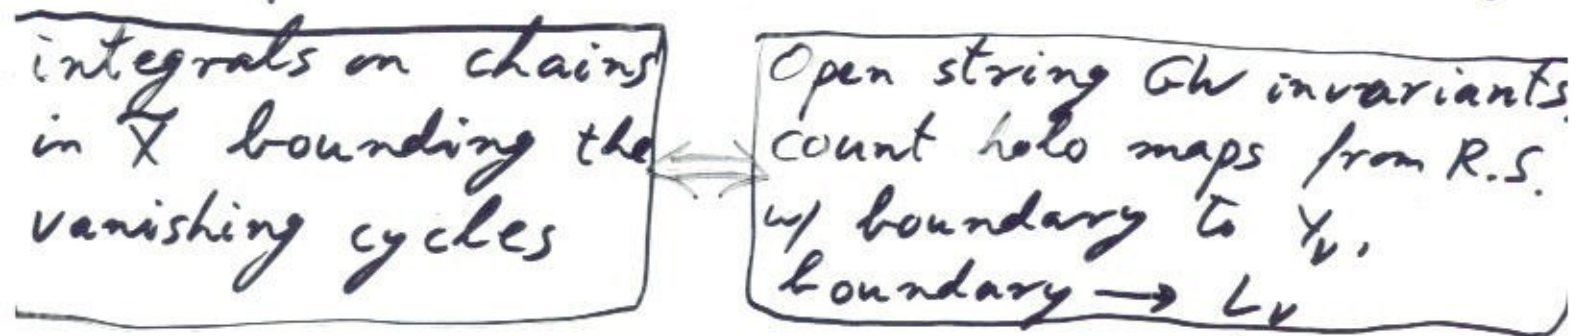 integrals on chains
in X̄ bounding the
vanishing cycles
Open string GW invariants
count holo maps from R.S.
w/ boundary to Yᵥ,
boundary → Lᵥ